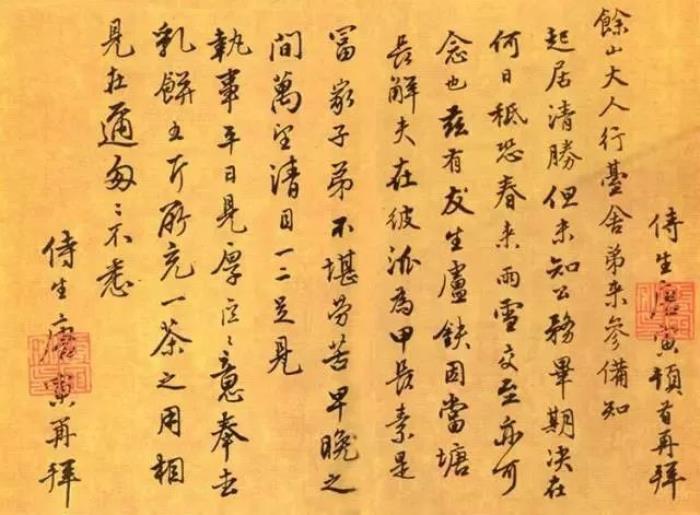 侍生唐寅頓首再拜
餘山大人行臺舍弟来參備知
起居清勝但未知公務畢期决在
何日秪恐春来雨雪交至亦可
念也茲有友生盧鈇因當塘
長解夫在彼派為甲長素是
冨家子弟不堪勞苦早晚之
間萬望清目一二足見
執事平日見厚區〻意奉去
乳餅五斤所充一茶之用相
見在邇匆〻不悉
侍生唐寅再拜